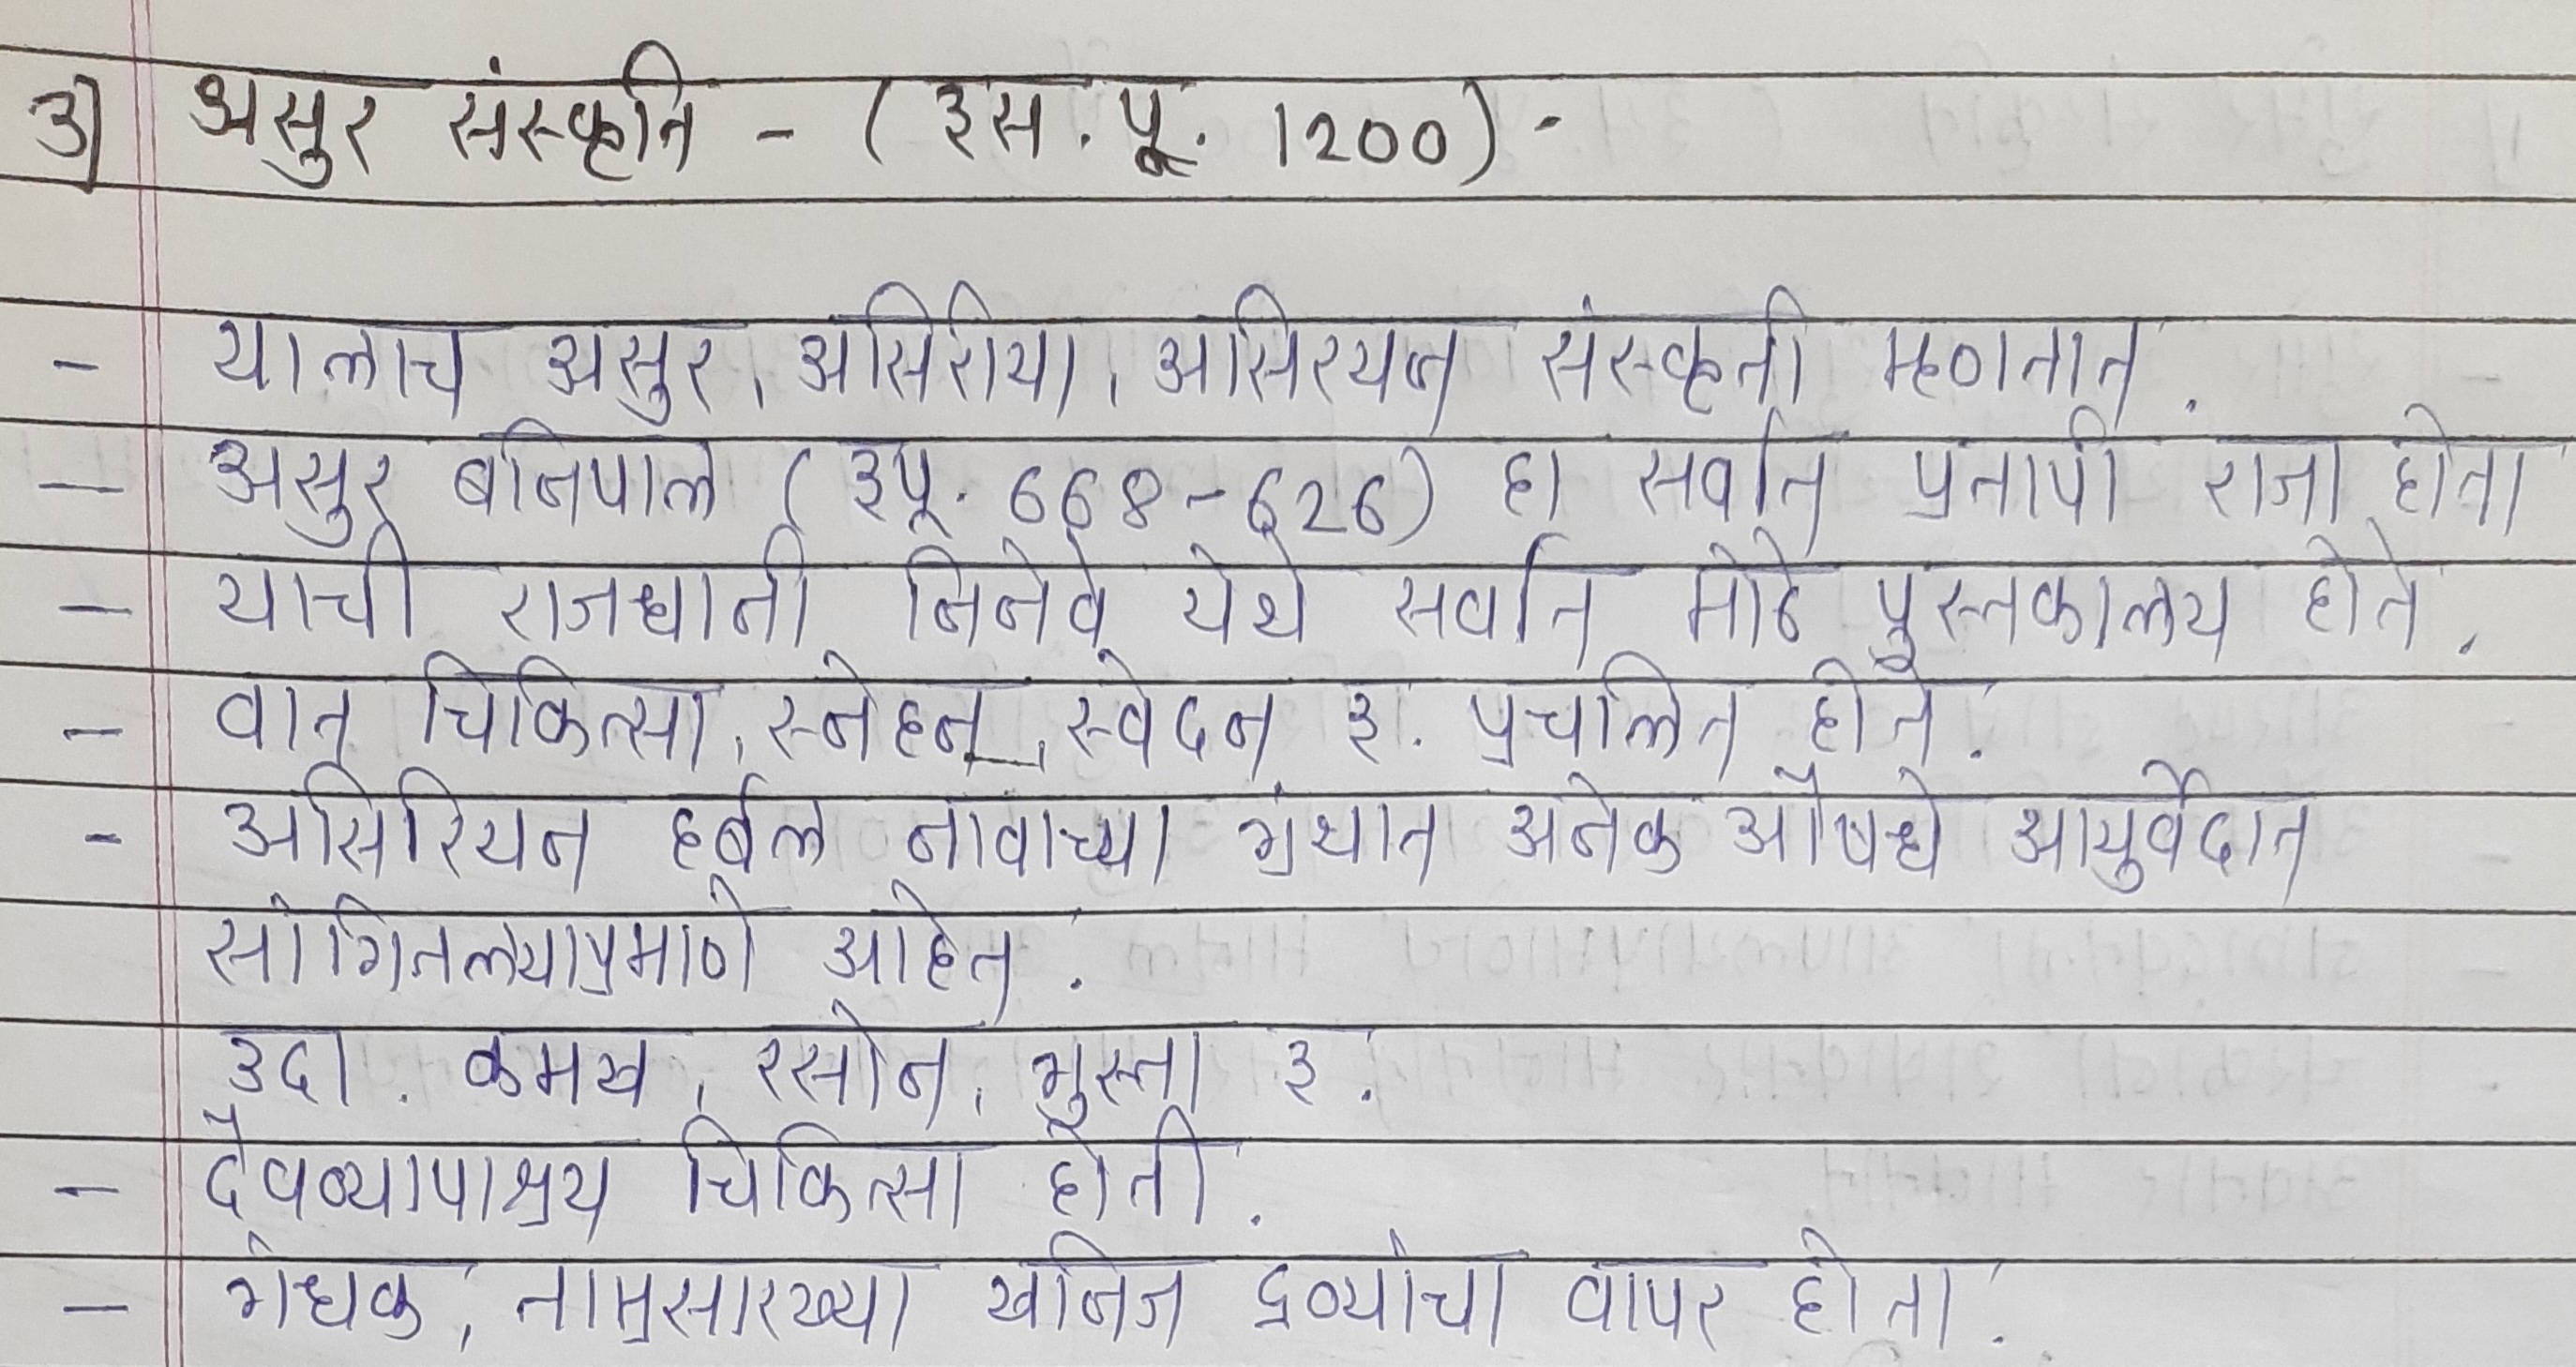 3] असुर संस्कृति - (इस. पू. 1200) -
- यालाच असुर, असिरीया, असिरयन संस्कृती म्हणतात.
- असुर बनिपाल (इपू. 668-626) हा सर्वात प्रतापी राजा होता
- याची राजधानी निनेवे येथे सर्वात मोठे पुस्तकालय होते.
- वात चिकित्सा, स्नेहन, स्वेदन इ. प्रचलित होते.
- असिरियन हर्बल नावाच्या ग्रंथात अनेक औषधे आयुर्वेदात
सांगितल्याप्रमाणे आहेत.
उदा. कमख, रसोन, मुस्ता इ.
- दैवव्यापाश्रय चिकित्सा होती.
- गंधक, ताम्रसारख्या खनिज द्रव्यांचा वापर होता.